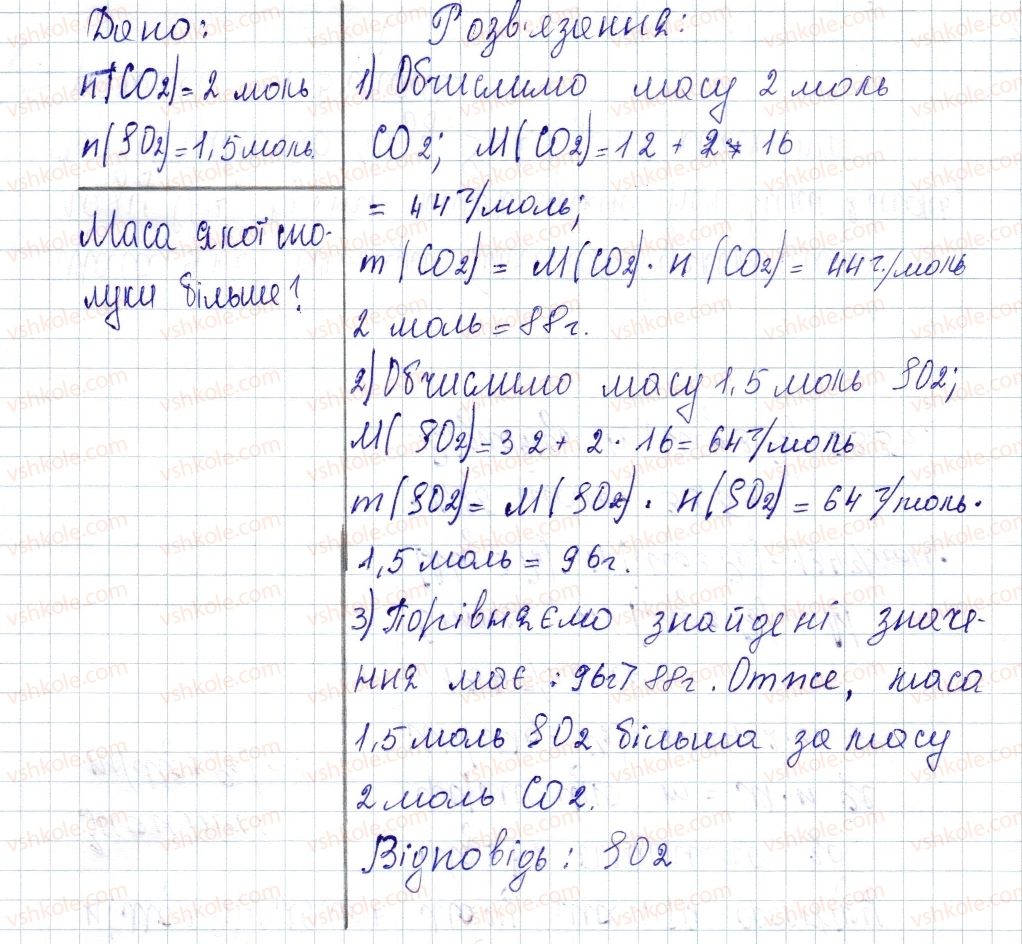 Дано:
n(CO2)=2 моль
n(SO2)=1,5 моль.
Маса якої спо-
луки більше?
Розв'язання:
1) Обчислимо масу 2 моль
CO2; M(CO2)=12+2*16
= 44 г/моль;
m(CO2) = M(CO2)·n(CO2) = 44 г/моль
2 моль = 88г.
2) Обчислимо масу 1,5 моль SO2;
M(SO2)=32+2·16=64 г/моль
m(SO2) = M(SO2)·n(SO2) = 64 г/моль·
1,5 моль = 96г.
3) Порівняємо знайдені значе-
ння має: 96г>88г. Отже, маса
1,5 моль SO2 більша за масу
2 моль CO2.
Відповідь: SO2
vshkole.com